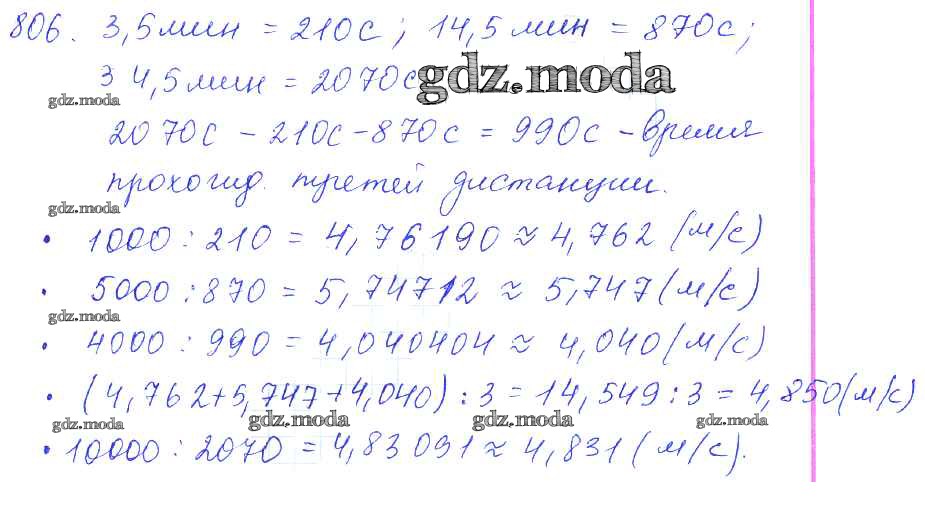 806. 3,5 мин = 210с; 14,5 мин = 870с;
34,5 мин = 2070с gdz.moda
gdz.moda
2070с - 210с - 870с = 990с - время
проходид. третей дистанции.
gdz.moda
• 1000 : 210 = 4,76190 ≈ 4,762 (м/с)
• 5000 : 870 = 5,74712 ≈ 5,747 (м/с)
gdz.moda
• 4000 : 990 = 4,040404 ≈ 4,040 (м/с)
• (4,762+5,747+4,040) : 3 = 14,549 : 3 = 4,850 (м/с)
gdz.moda gdz.moda gdz.moda gdz.moda
• 10000 : 2070 = 4,83091 ≈ 4,831 (м/с).